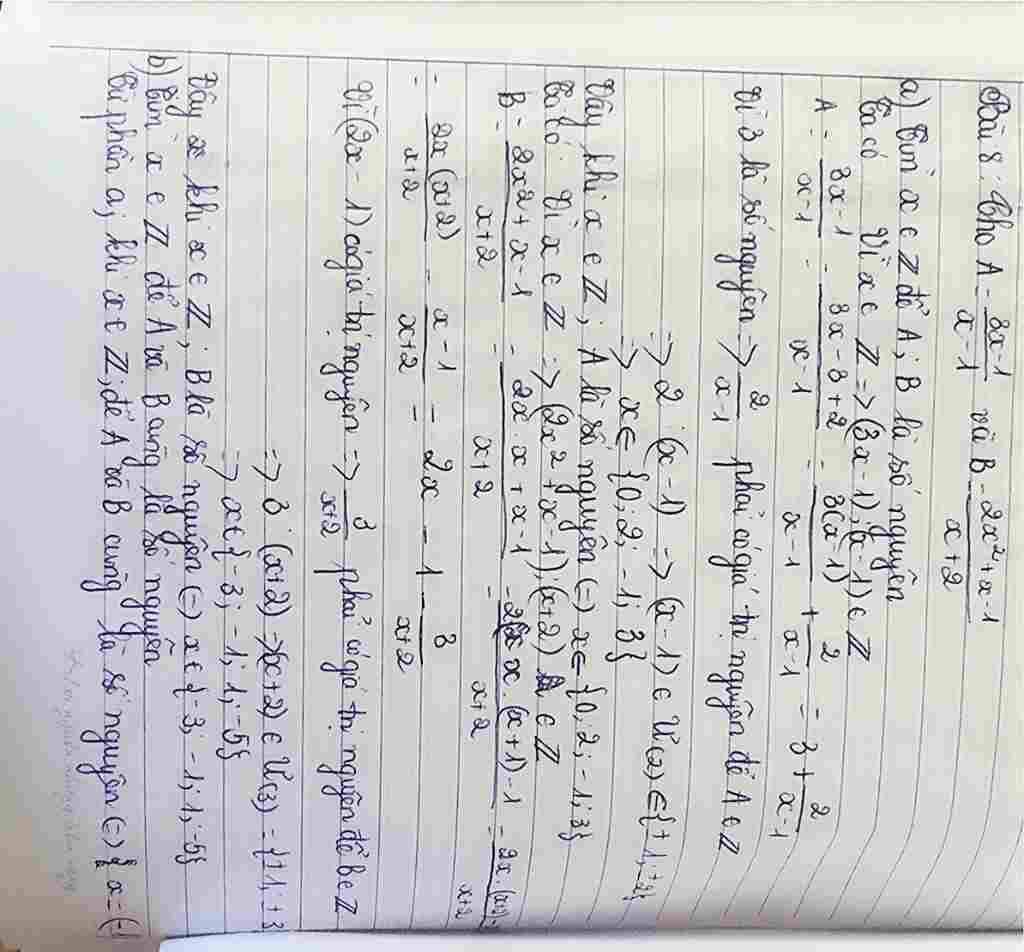 Bài 8: Cho A = 3x-1/x-1 và B = 2x²+x-1/x+2
a) Tìm x ∈ Z để A; B là số nguyên
Ta có Vì x ∈ Z => (3x-1); (x-1) ∈ Z
A = 3x-1/x-1 = 3x-3+2/x-1 = 3(x-1)/x-1 + 2/x-1 = 3 + 2/x-1
Vì 3 là số nguyên => 2/x-1 phải có giá trị nguyên để A ∈ Z
=> 2 ⋮ (x-1) => (x-1) ∈ Ư(2) ∈ {±1; ±2}
=> x ∈ {0; 2; -1; 3}
Vậy khi x ∈ Z; A là số nguyên (=) x ∈ {0; 2; -1; 3}
Ta có: Vì x ∈ Z => (2x²+x-1); (x+2) ∈ Z
B = 2x²+x-1/x+2 = 2x.x+x-1/x+2 = x.(x+1)-1/x+2 = 2x.(x+2)-/x+2
= 2x(x+2)/x+2 - x-1/x+2 = 2x - 1 - 3/x+2
Vì (2x-1) có giá trị nguyên => 3/x+2 phải có giá trị nguyên để B ∈ Z
=> 3 ⋮ (x+2) => (x+2) ∈ Ư(3) = {±1; ±3
=> x ∈ {-3; -1; 1; -5}
Vậy x khi x ∈ Z; B là số nguyên (=) x ∈ {-3; -1; 1; -5}
b) Tìm x ∈ Z để A và B cùng là số nguyên
Từ phần a; khi x ∈ Z; để A và B cùng là số nguyên (=) { x = (-1